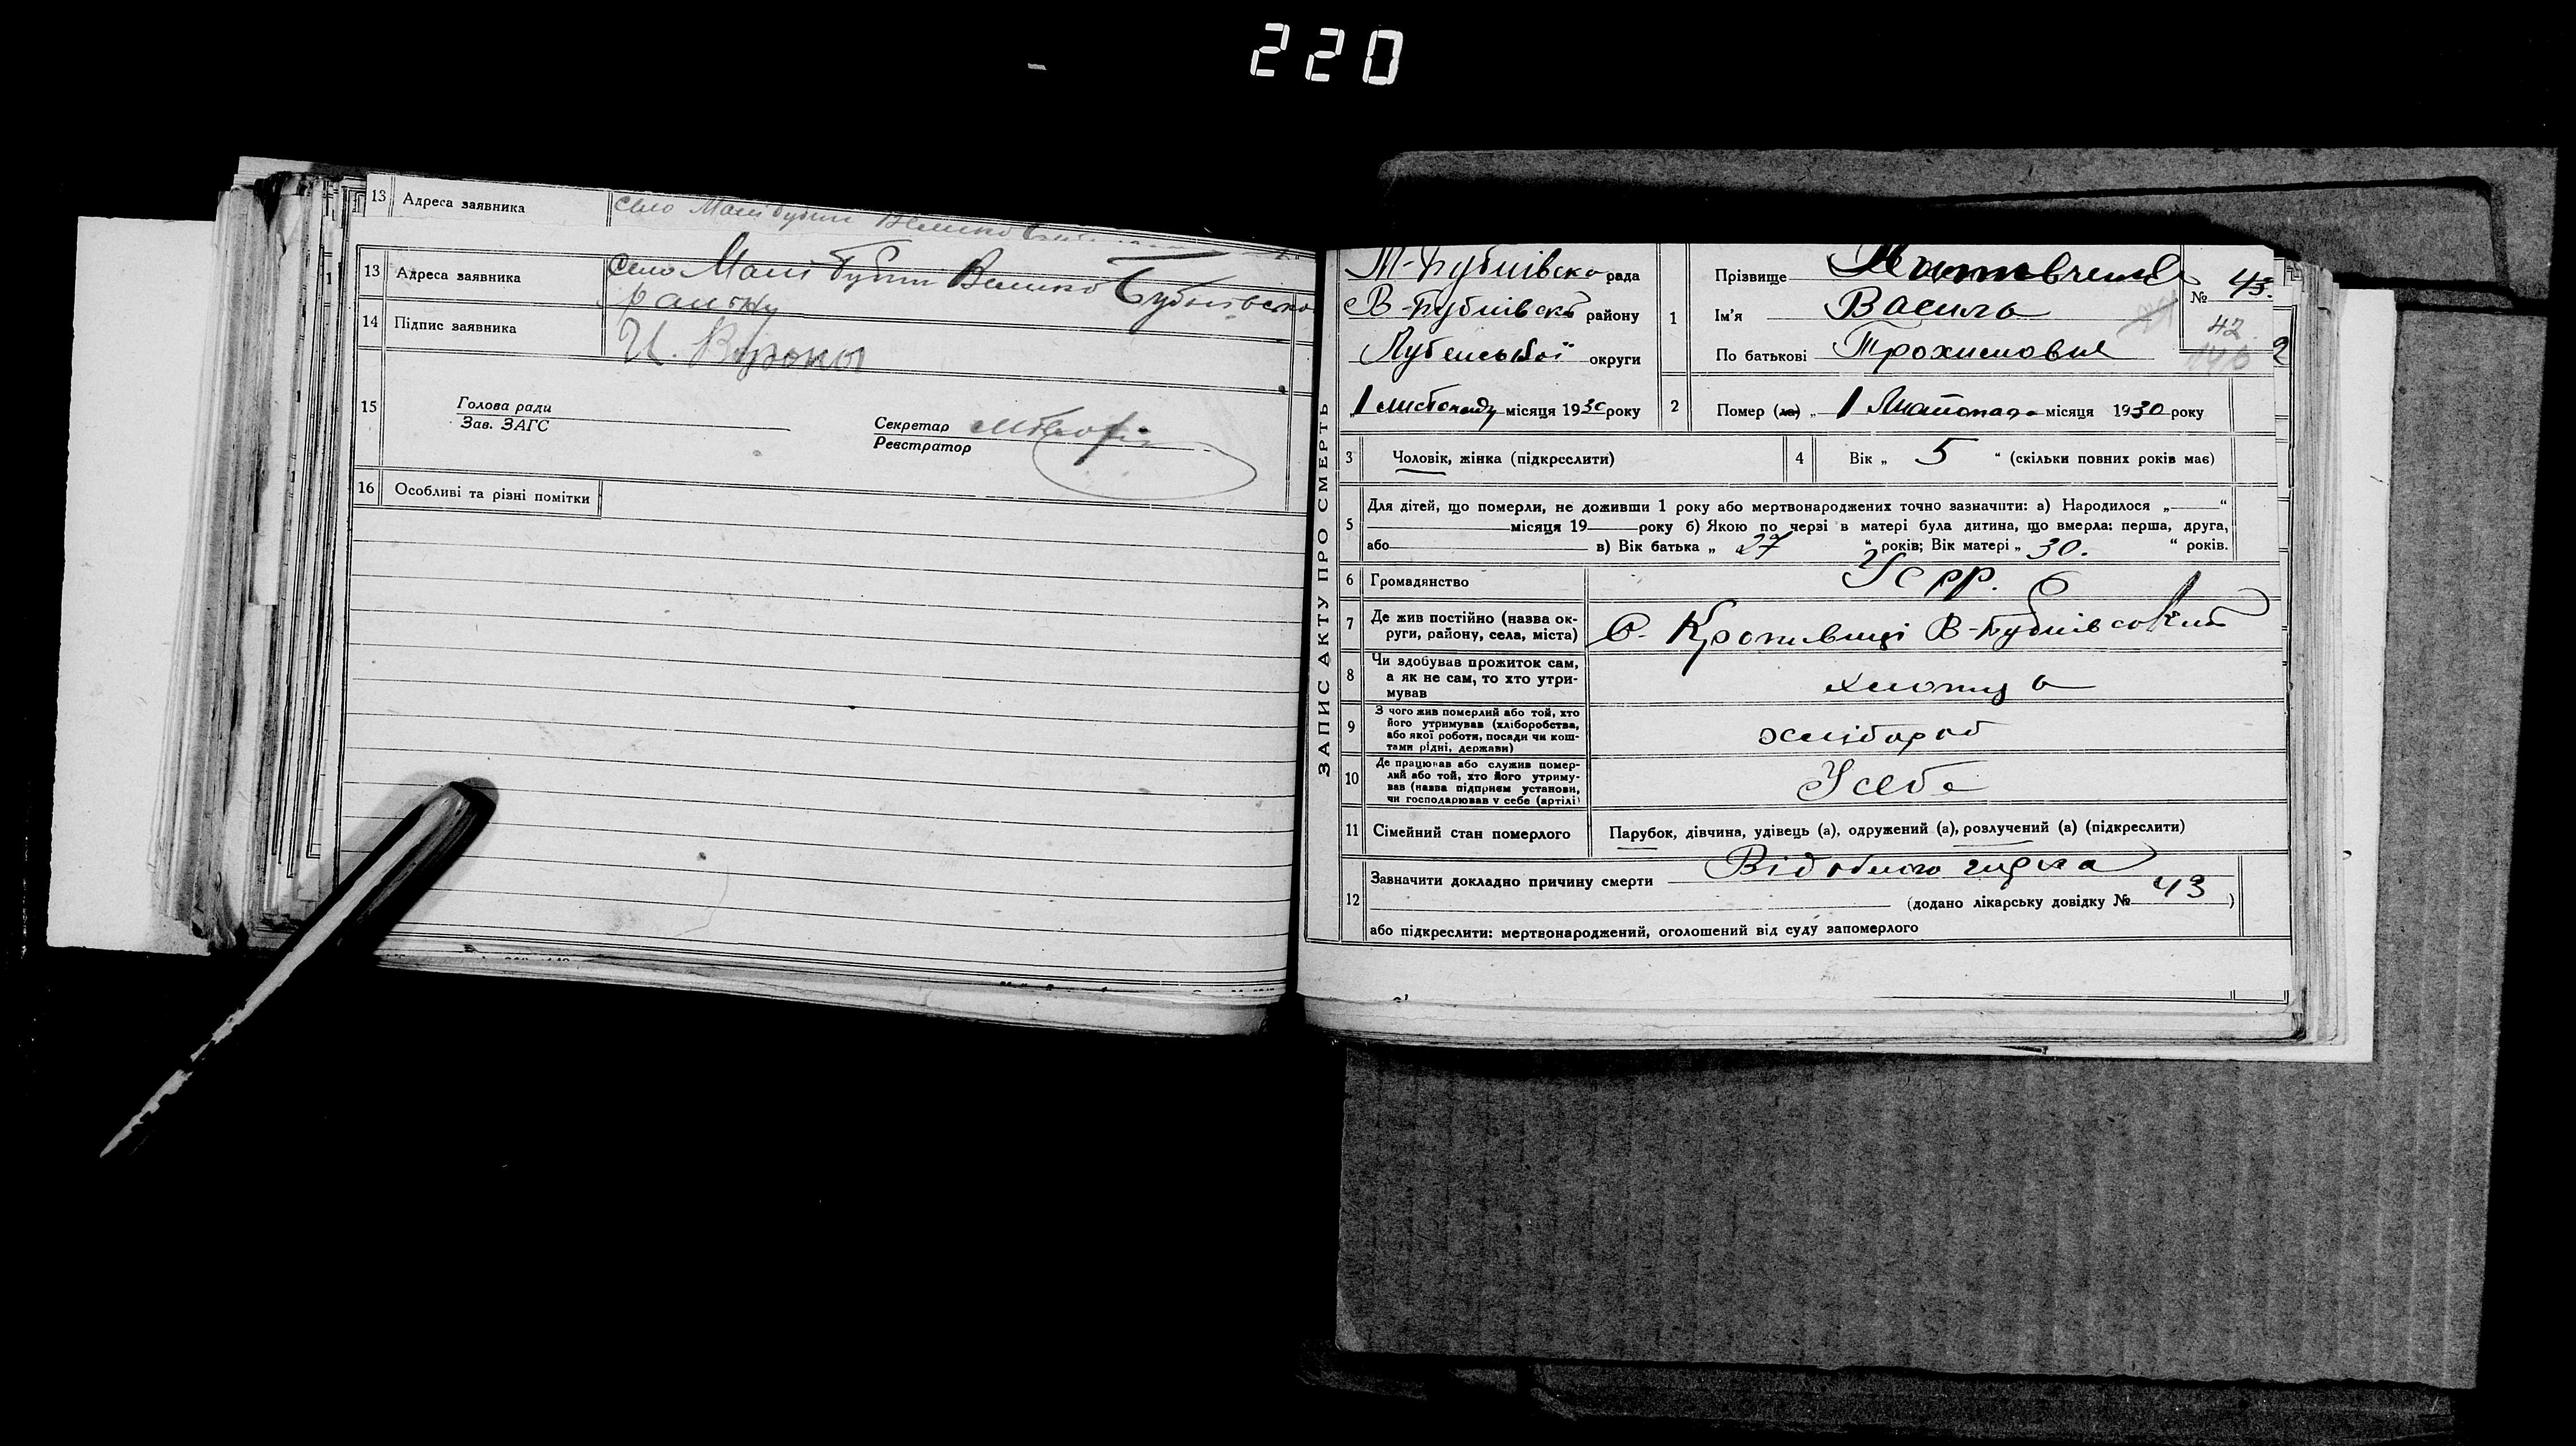 220
13 Адреса заявника село Малі Бубни Велико
13 Адреса заявника Село Малі Бубни Велико Бубнівсько
району
14 Підпис заявника И. Вороны
15 Голова ради
Зав. ЗАГС
Секретар
Реєстратор
16 Особливі та різні помітки
ЗАПИС АКТУ ПРО СМЕРТЬ
М-Бубнівсько рада
В-Бубнівсько району
Лубенської округи
„1 листопаду місяця 1930 року
1 Прізвище
Ім'я Василь
По батькові Трохимович
№ 43.
42
146
2 Помер (ла) „ 1 Листопада місяця 1930 року
3 Чоловік, жінка (підкреслити)
4 Вік „ 5 “ (скільки повних років має)
5 Для дітей, що померли, не доживши 1 року або мертвонароджених точно зазначити: а) Народилося „ “
місяця 19 року б) Якою по черзі в матері була дитина, що вмерла: перша, друга,
або в) Вік батька „ 27 “ років; Вік матері „ 30. “ років.
6 Громадянство УСРР.
7 Де жив постійно (назва округи, району, села, міста) С. Кропивниці В-Бубнівський
8 Чи здобував прожиток сам, а як не сам, то хто утримував
9 З чого жив померлий або той, хто його утримував (хліборобства, або якої роботи, посади чи коштами рідні, держави) хлібороб
10 Де працював або служив померлий або той, хто його утримував (назва підприєм установи, чи господарював у себе (артілі) У себе
11 Сімейний стан померлого Парубок, дівчина, удівець (а), одружений (а), розлучений (а) (підкреслити)
12 Зазначити докладно причину смерти Від
(додано лікарську довідку № 43 )
або підкреслити: мертвонароджений, оголошений від суду запомерлого